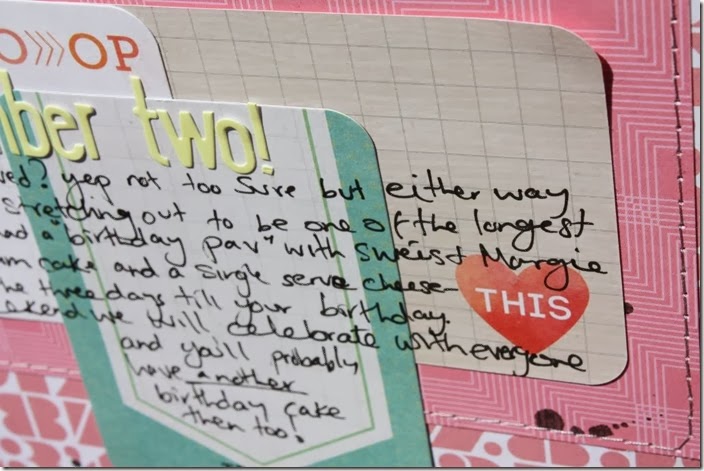 O>>>OP
ber two!
ved? yep not too sure but either way
stretching out to be one of the longest
had a "birthday pav" with Margie
am cake and a single serve cheese-
he three days till your birthday.
ekend we will celebrate with everyone
THIS
and ya'll probably
have another
birthday cake
then too.